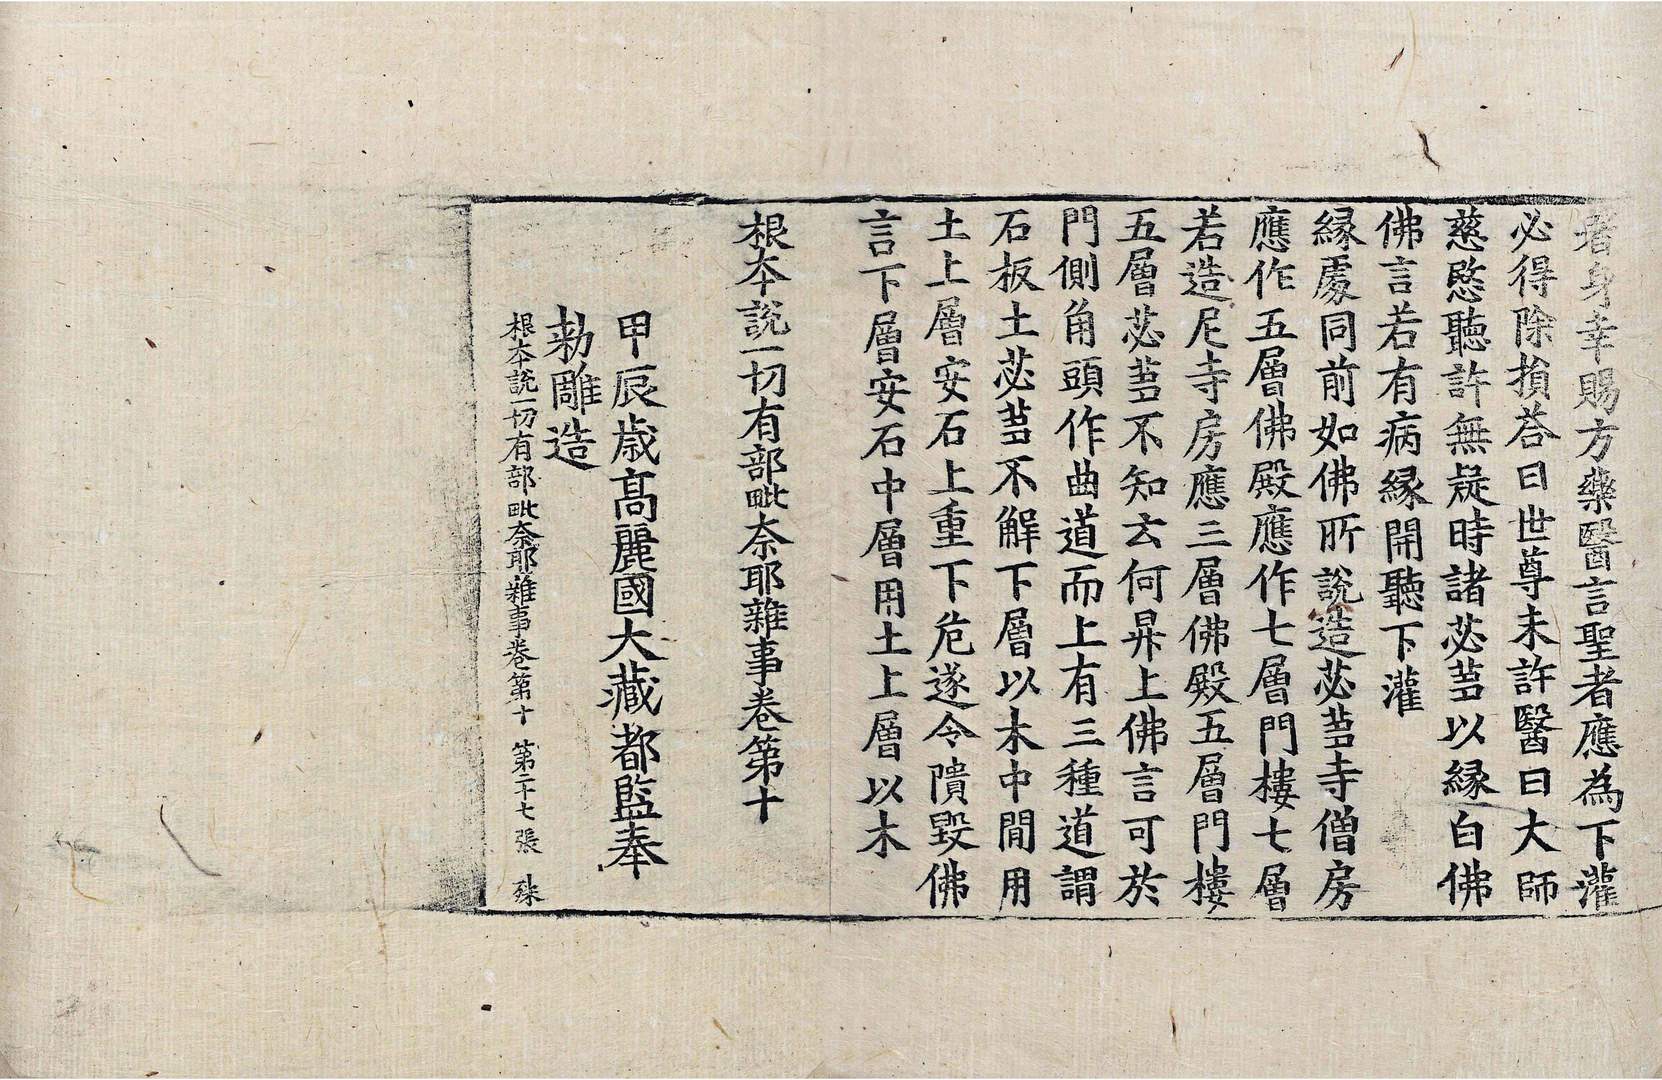 者身幸賜方藥醫言聖者應為下灌
必得除損荅曰世尊未許醫曰大師
慈愍聽許無疑時諸苾芻以縁白佛
佛言若有病縁開聽下灌
縁處同前如佛所說造苾芻寺僧房
應作五層佛殿應作七層門樓七層
若造尼寺房應三層佛殿五層門樓
五層苾芻不知云何昇上佛言可於
門側角頭作曲道而上有三種道謂
石板土苾芻不解下層以木中間用
土上層安石上重下危遂令隤毀佛
言下層安石中層用土上層以木
根本說一切有部毗奈耶雜事卷第十
甲辰歲高麗國大藏都監奉
勅雕造
根本說一切有部毗奈耶雜事卷第十 第二十七張 殊